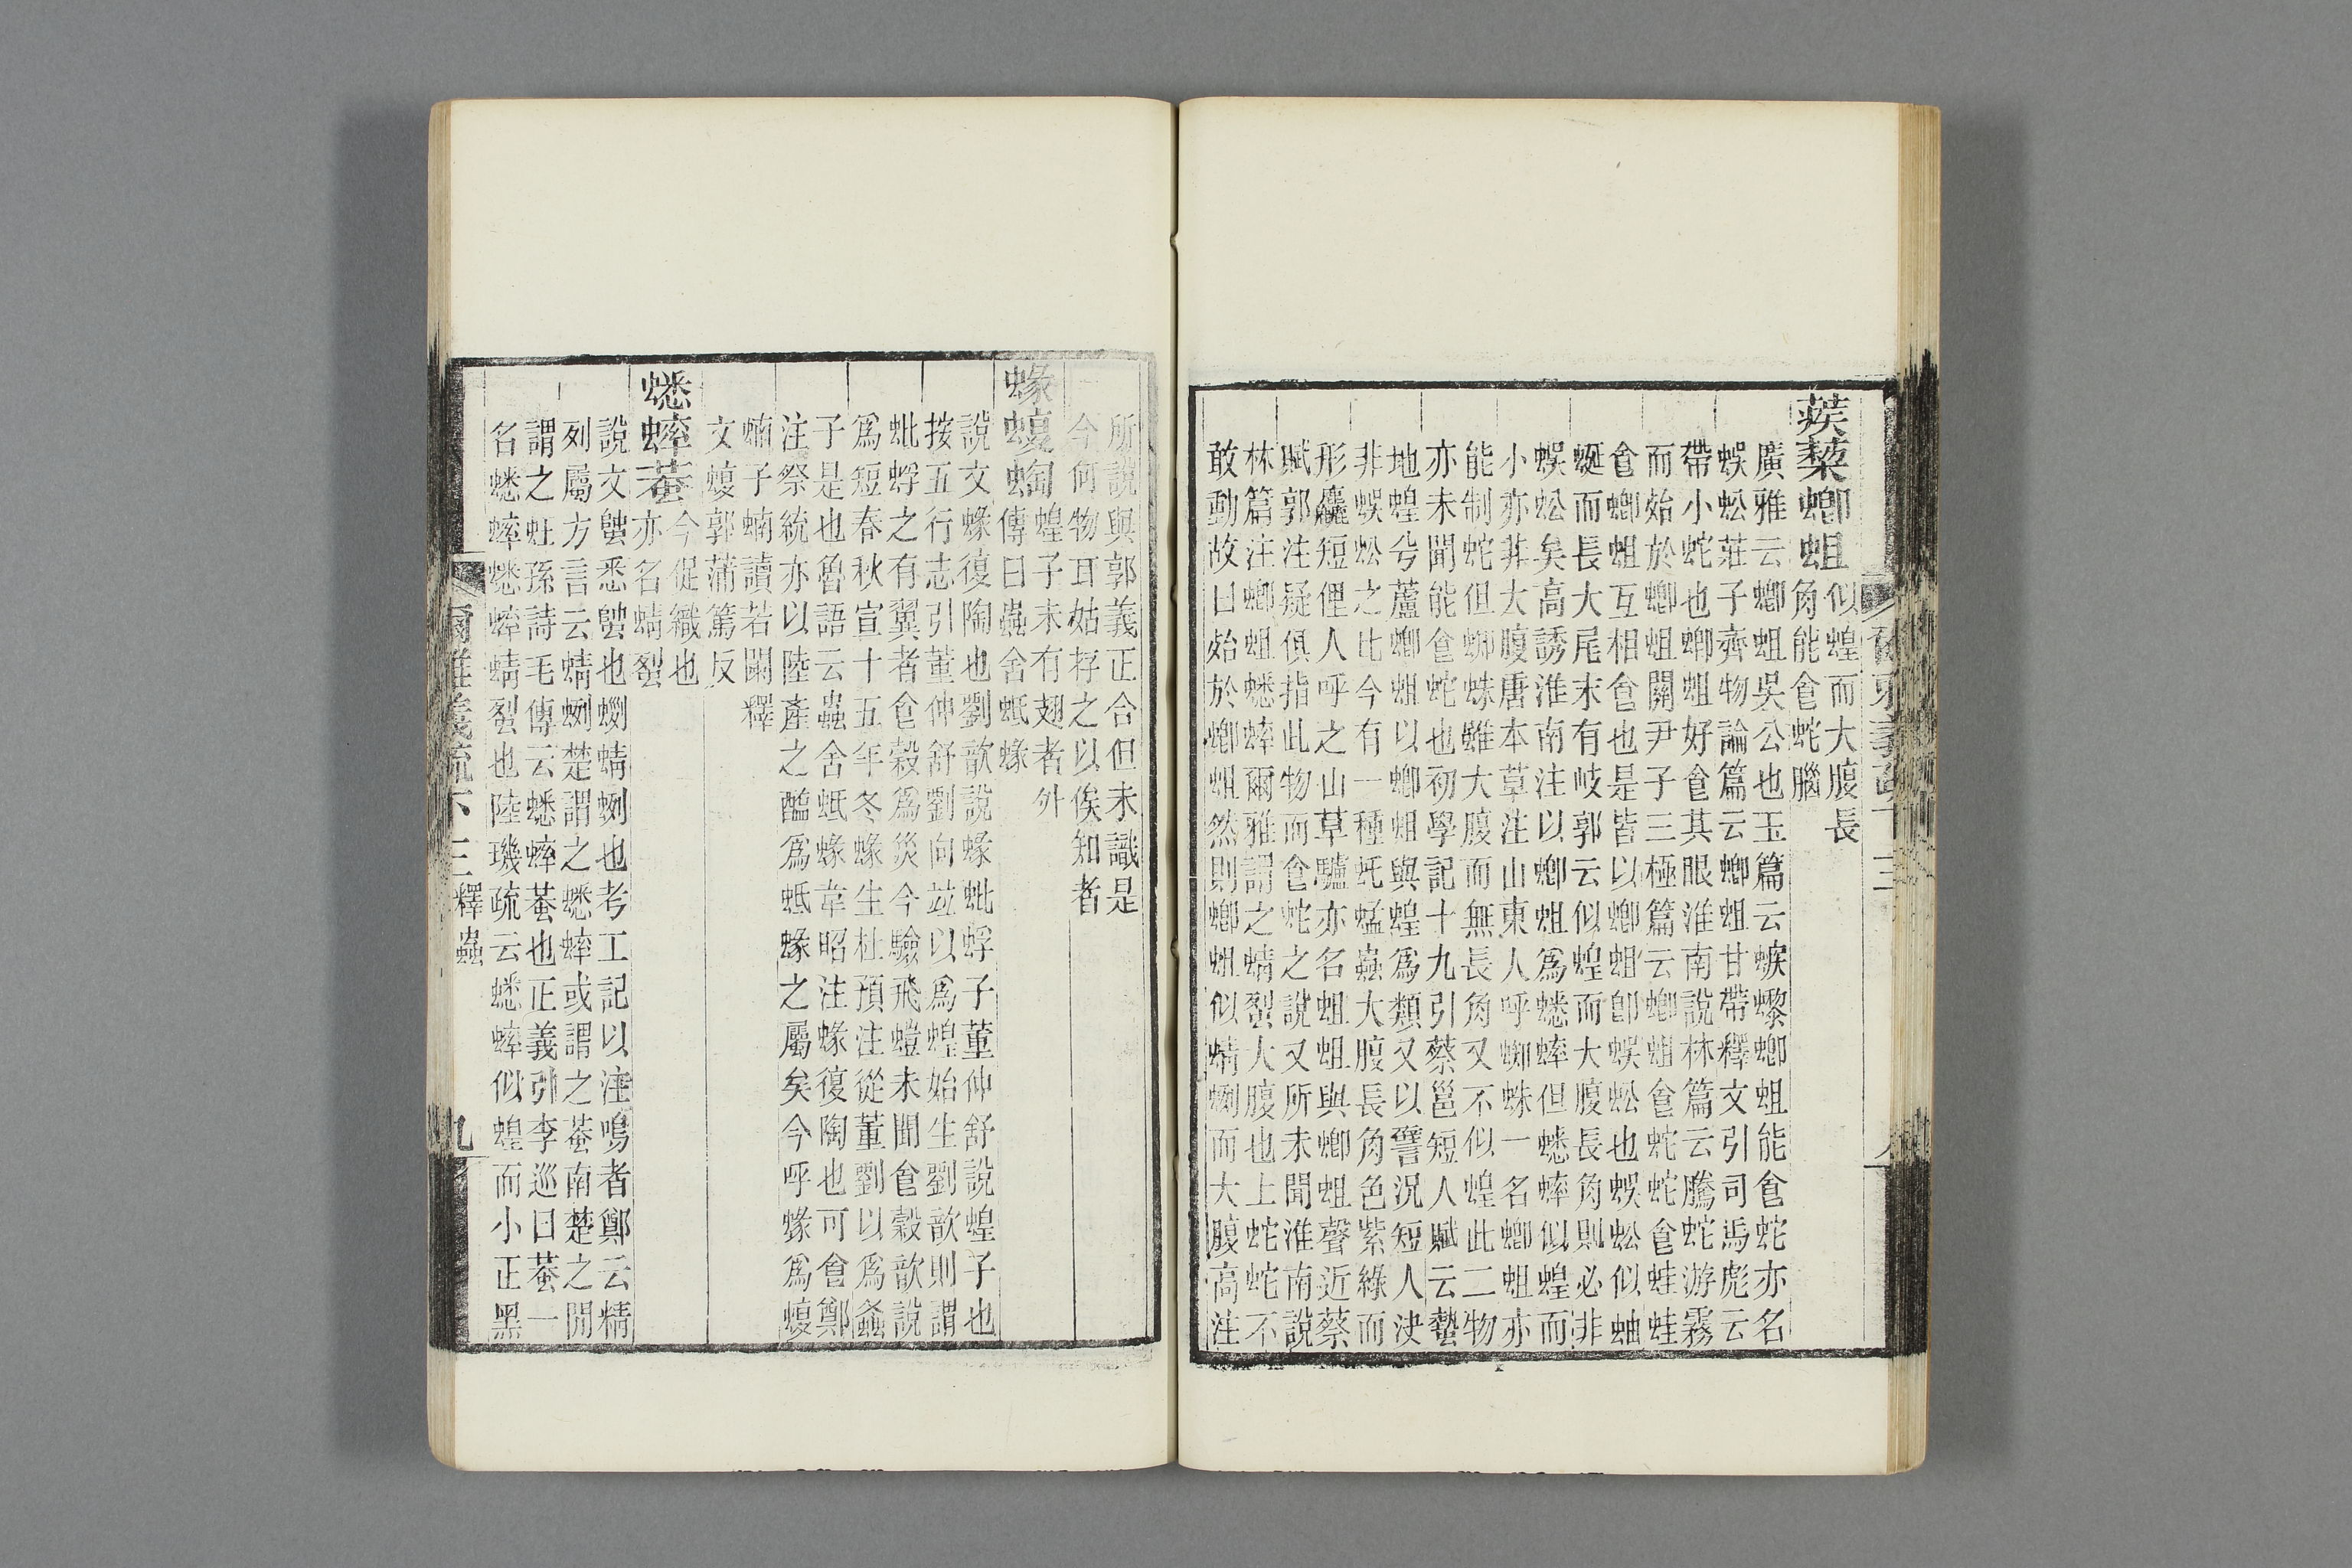 蒺蔾蝍蛆
似蝗而大腹長
角能食蛇腦
廣雅云蝍蛆吳公也玉篇云螏蟍蝍蛆能食蛇亦名
蜈蚣莊子齊物論篇云蝍蛆甘帶釋文引司馬彪云
帶小蛇也蝍蛆好食其眼淮南說林篇云騰蛇游霧
而殆於蝍蛆關尹子三極篇云蝍蛆食蛇蛇食蛙蛙
食蝍蛆互相食也是皆以蝍蛆卽蜈蚣也蜈蚣似蚰
蜒而長大尾末有岐郭云似蝗而大腹長角則必非
蜈蚣矣高誘淮南注以蝍蛆爲蟋蟀但蟋蟀似蝗而
小亦非大腹唐本草注山東人呼蜘蛛一名蝍蛆亦
能制蛇但蜘蛛雖大腹而無長角又不似蝗此二物
亦未聞能食蛇也初學記十九引蔡邕短人賦云蟄
地蝗兮蘆蝍蛆以蝍蛆與蝗爲類又以譬況短人決
非蜈蚣之比今有一種蚝蜢蟲大腹長角色紫綠而
形麤短俚人呼之山草驢亦名蛆蛆與蝍蛆聲近蔡
賦郭注疑俱指此物而食蛇之說又所未聞淮南說
林篇注蝍蛆蟋蟀爾雅謂之蜻䖽大腹也上蛇蛇不
敢動故曰殆於蝍蛆然則蝍蛆似蜻蛚而大腹高注
所說與郭義正合但未識是
今何物耳姑存之以俟知者
蝝蝮蜪
蝗子未有翅者外
傳曰蟲舍蚳蝝
說文蝝復陶也劉歆說蝝蚍蜉子董仲舒說蝗子也
按五行志引董仲舒劉向竝以爲蝗始生劉歆則謂
蚍蜉之有翼者食穀爲災今驗飛螘未聞食穀歆說
爲短春秋宣十五年冬蝝生杜預注從董劉以爲螽
子是也魯語云蟲舍蚳蝝韋昭注蝝復陶也可食鄭
注祭統亦以陸產之醢爲蚳蝝之屬矣今呼蝝爲蝮
蝻子蝻讀若闌釋
文蝮郭蒲篤反
蟋蟀蛬
今促織也
亦名蜻䖽
說文䘀悉䘀也蜊蜻蛚也考工記以注鳴者鄭云精
列屬方言云蜻蛚楚謂之蟋蟀或謂之蛬南楚之閒
謂之蚟孫詩毛傳云蟋蟀蛬也正義引李巡曰蛬一
名蟋蟀蟋蟀蜻䖽也陸璣疏云蟋蟀似蝗而小正黑
爾雅義疏下三 釋蟲 九